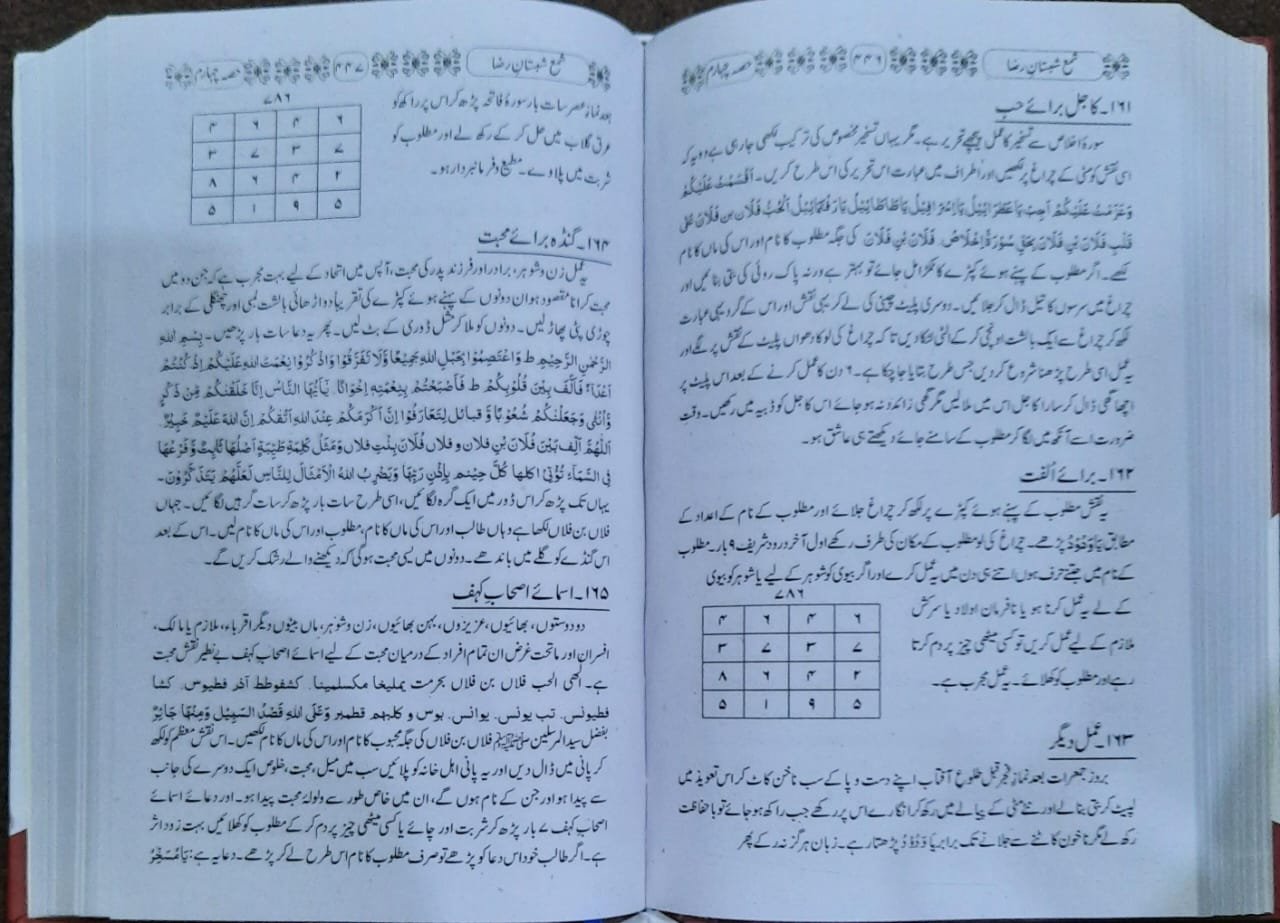 شمع شبستانِ رضا ۴۴۶ حصہ چہارم
۱۶۱۔ کاجل برائے حب
سورۂ اخلاص سے تسخیر کا عمل پیچھے تحریر ہے۔ مگر یہاں تسخیر مخصوص کی ترکیب لکھی جا رہی ہے وہ یہ کہ
اسی نقش کو مٹی کے چراغ پر لکھیں اور اطراف میں عبارت اس تحریر کی اس طرح کریں۔ اَقْسَمْتُ عَلَيْكُمْ
وَعَزَمْتُ عَلَيْكُمْ اَجِبْ يَا عَطْرَائِيْلُ يَا اِسْرَافِيْلُ يَا طَاطَائِيْلُ يَا رَفْتَمَائِيْلُ اَلْحُبُّ فُلَانْ بن فُلَانْ عَلٰی
قَلْبِ فُلَانْ بْنِ فُلَانْ بِحَقِّ سُوْرَةُ اِخْلَاصْ۔ فُلَانْ بْنِ فُلَانْ کی جگہ مطلوب کا نام اور اس کی ماں کا نام
لکھے۔ اگر مطلوب کے پہنے ہوئے کپڑے کا ٹکڑا مل جائے تو بہتر ہے ورنہ پاک روئی کی بتی بنائیں اور
چراغ میں سرسوں کا تیل ڈال کر جلائیں۔ دوسری پلیٹ چینی کی لے کر یہی نقش اور اس کے گرد یہی عبارت
لکھ کر چراغ سے ایک بالشت اونچی کر کے الٹی لٹکا دیں تا کہ چراغ کی لو کا دھواں پلیٹ کے نقش پر لگے اور
یہ عمل اسی طرح پڑھنا شروع کردیں جس طرح بتایا جا چکا ہے۔ ۶ دن کا عمل کرنے کے بعد اس پلیٹ پر
اچھا گھی ڈال کر سارا کاجل اس میں ملالیں مگر گھی زائد نہ ہو جائے اس کاجل کو ڈبیہ میں رکھیں۔ وقتِ
ضرورت اسے آنکھ میں لگا کر مطلوب کے سامنے جائے دیکھتے ہی عاشق ہو۔
۱۶۲۔ برائے اُلفت
یہ نقش مطلوب کے پہنے ہوئے کپڑے پر لکھ کر چراغ جلائے اور مطلوب کے نام کے اعداد کے
مطابق یَاوَدُوْدُ پڑھے۔ چراغ کی لو مطلوب کے مکان کی طرف رکھے اول آخر درود شریف ۹ بار۔ مطلوب
کے نام میں جتنے حرف ہوں اتنے ہی دن میں یہ عمل کرے اور اگر بیوی کو شوہر کے لیے یا شوہر کو بیوی
کے لے یہ عمل کرنا ہو یا نافرمان اولاد یا سرکش
ملازم کے لیے عمل کریں تو کسی میٹھی چیز پر دم کرتا
رہے اور مطلوب کو کھلائے۔ یہ عمل مجرب ہے۔
۷۸۶
۴ ۶ ۴ ۶
۳ ۷ ۳ ۷
۸ ۶ ۴ ۲
۵ ۱ ۹ ۵
۱۶۳۔ عمل دیگر
بروز جمعرات بعد نمازِ فجر قبل طلوع آفتاب اپنے دست و پا کے سب ناخن کاٹ کر اس تعویذ میں
لپیٹ کر بتی بنالے اور نئے مٹی کے پیالے میں رکھ کر انگارے اس پر رکھے جب راکھ ہو جائے تو با حفاظت
رکھ لے مگر ناخون کاٹنے سے جلانے تک برابر یَا وَدُوْدُ پڑھتا رہے۔ زبان ہرگز نہ رکے پھر
شمع شبستانِ رضا ۴۴۷ حصہ چہارم
بعد نمازِ عصر سات بار سورۂ فاتحہ پڑھ کر اس پر راکھ کو
عرقِ گلاب میں حل کر کے رکھ لے اور مطلوب کو
شربت میں پلاوے۔ مطیع و فرمانبردار ہو۔
۷۸۶
۴ ۶ ۴ ۶
۳ ۷ ۳ ۷
۸ ۶ ۴ ۲
۵ ۱ ۹ ۵
۱۶۴۔ گنڈہ برائے محبت
یہ عمل زن و شوہر، برادر اور فرزند پدر کی محبت، آپس میں اتحاد کے لیے بہت مجرب ہے کہ جن دو میں
محبت کرانا مقصود ہو ان دونوں کے پہنے ہوئے کپڑے کی تقریباً دو اڑھائی بالشت لمبی اور چھنگلی کے برابر
چوڑی پٹی پھاڑ لیں۔ دونوں کو ملا کر مثل ڈوری کے بٹ لیں۔ پھر یہ دعا سات بار پڑھیں۔ بِسْمِ اللہِ
الرَّحْمٰنِ الرَّحِيْمِ ط وَاعْتَصِمُوْا بِحَبْلِ اللہِ جَمِيْعًا وَّلَا تَفَرَّقُوْا وَاذْكُرُوْا نِعْمَتَ اللہِ عَلَيْكُمْ اِذْ كُنْتُمْ
اَعْدَآءً فَاَلَّفَ بَيْنَ قُلُوْبِكُمْ ط فَاَصْبَحْتُمْ بِنِعْمَتِهٖ اِخْوَانًا۔ يٰاَيُّهَا النَّاسُ اِنَّا خَلَقْنٰكُمْ مِّنْ ذَكَرٍ
وَّاُنْثٰی وَجَعَلْنٰكُمْ شُعُوْبًا وَّ قبائل لِتَعَارَفُوْا اِنَّ اَكْرَمَكُمْ عِنْدَ اللہِ اَتْقٰكُمْ اِنَّ اللہَ عَلِيْمٌ خَبِيْرٌ۔
اَللّٰهُمَّ اَلِّفْ بَيْنَ فُلَانْ بن فلان و فلاں فُلَانْ بِنْتِ فلان وَمَثَلُ كَلِمَةٍ طَيِّبَةٍ اَصْلُهَا ثَابِتٌ وَّفَرْعُهَا
فِی السَّمَآءِ تُؤْتِیْ اكلها كُلَّ حِيْنٍم بِاِذْنِ رَبِّهَا وَيَضْرِبُ اللہُ الْاَمْثَالُ لِلنَّاسِ لَعَلَّهُمْ يَتَذَكَّرُوْنَ۔
یہاں تک پڑھ کر اس ڈور میں ایک گرہ لگائیں، اسی طرح سات بار پڑھ کر سات گرہیں لگائیں۔ جہاں
فلاں بن فلاں لکھا ہے وہاں طالب اور اس کی ماں کا نام، مطلوب اور اس کی ماں کا نام لیں۔ اس کے بعد
اس گنڈے کو گلے میں باندھے۔ دونوں میں ایسی محبت ہوگی کہ دیکھنے والے رشک کریں گے۔
۱۶۵۔ اسمائے اصحابِ کہف
دو دوستوں، بھائیوں، عزیزوں، بہن بھائیوں، زن و شوہر، ماں بیٹوں دیگر اقرباء، ملازم یا مالک،
افسران اور ماتحت غرض ان تمام افراد کے درمیان محبت کے لیے اسمائے اصحاب کہف بے نظیر نقش محبت
ہے۔ الٰهی الحب فلاں بن فلاں بحرمت یملیخا مکسلمینا۔ کشفوطط آذر فطیوس۔ کشا
فطیونس۔ تب یونس۔ یوانس۔ بوس و کلبهم قطمیر وَعَلَی اللہِ قَصْدُ السَّبِيْلِ وَمِنْهَا جَائِرٌ
بفضل سید المرسلین ﷺ فلاں بن فلاں کی جگہ محبوب کا نام اور اس کی ماں کا نام لکھیں۔ اس نقش معظم کو لکھ
کر پانی میں ڈال دیں اور یہ پانی اہل خانہ کو پلائیں سب میں میل، محبت، خلوص ایک دوسرے کی جانب
سے پیدا ہو اور جن کے نام ہوں گے، ان میں خاص طور سے ولولۂ محبت پیدا ہو۔ اور دعائے اسمائے
اصحاب کہف ۷ بار پڑھ کر شربت اور چائے یا کسی میٹھی چیز پر دم کر کے مطلوب کو کھلائیں بہت زود اثر
ہے۔ اگر طالب خود اس دعا کو پڑھے تو صرف مطلوب کا نام اس طرح لے کر پڑھے۔ دعا یہ ہے: یَامُسَخِّرُ